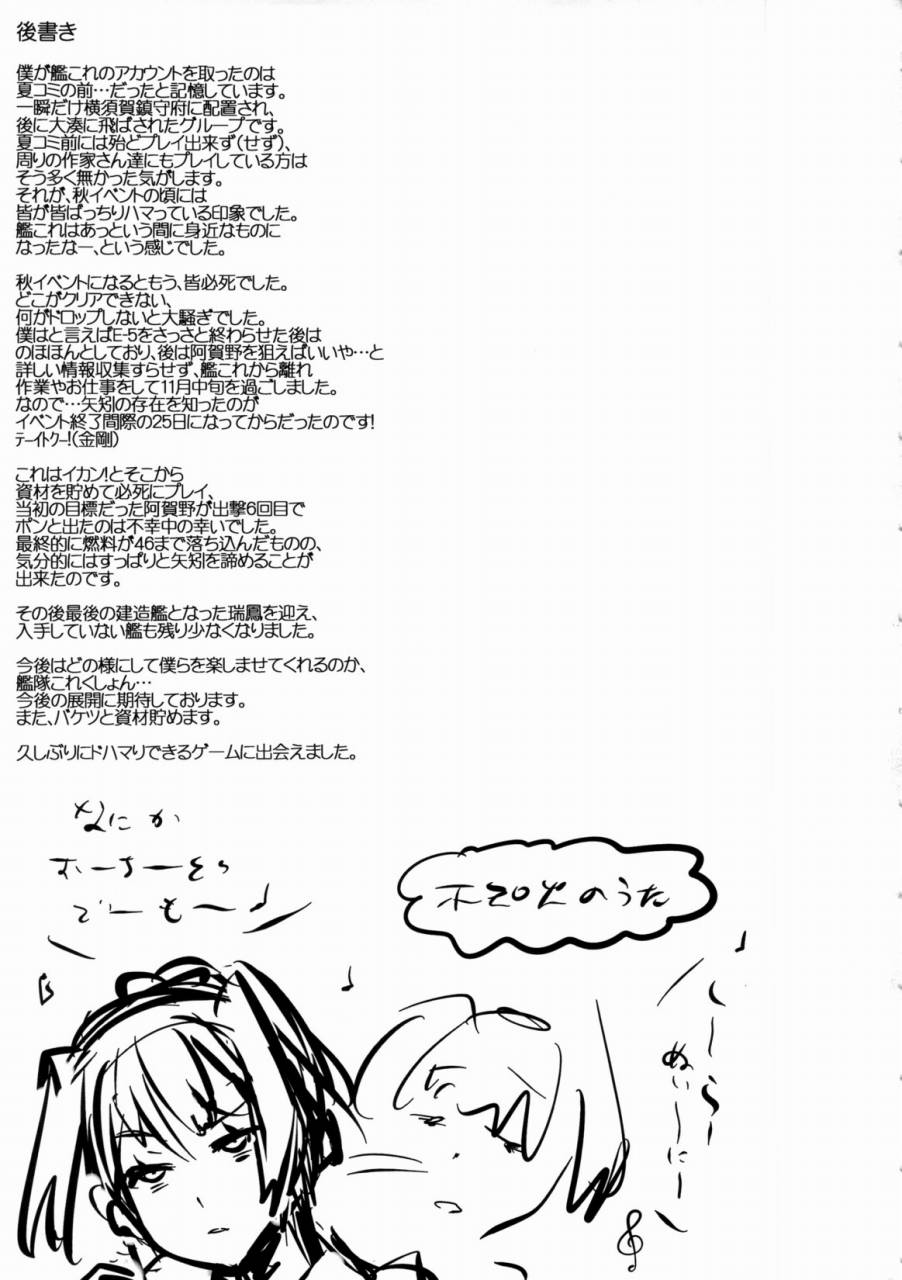 後書き
僕が艦これのアカウントを取ったのは
夏コミの前…だったと記憶しています。
一瞬だけ横須賀鎮守府に配置され、
後に大湊に飛ばされたグループです。
夏コミ前には殆どプレイ出来ず(せず)、
周りの作家さん達にもプレイしている方は
そう多く無かった気がします。
それが、秋イベントの頃には
皆が皆ばっちりハマっている印象でした。
艦これはあっという間に身近なものに
なったなー、という感じでした。
秋イベントになるともう、皆必死でした。
どこがクリアできない、
何がドロップしないと大騒ぎでした。
僕はと言えばE-5をさっさと終わらせた後は
のほほんとしており、後は阿賀野を狙えばいいや…と
詳しい情報収集すらせず、艦これから離れ
作業やお仕事をして11月中旬を過ごしました。
なので…矢矧の存在を知ったのが
イベント終了間際の25日になってからだったのです!
テーイトクー!(金剛)
これはイカン!とそこから
資材を貯めて必死にプレイ、
当初の目標だった阿賀野が出撃6回目で
ポンと出たのは不幸中の幸いでした。
最終的に燃料が46まで落ち込んだものの、
気分的にはすっぱりと矢矧を諦めることが
出来たのです。
その後最後の建造艦となった瑞鳳を迎え、
入手していない艦も残り少なくなりました。
今後はどの様にして僕らを楽しませてくれるのか、
艦隊これくしょん…
今後の展開に期待しております。
また、バケツと資材貯めます。
久しぶりにドハマりできるゲームに出会えました。
なにか
おーちーそう
でーもー♪
のうた
しーらー
ぬいーにー